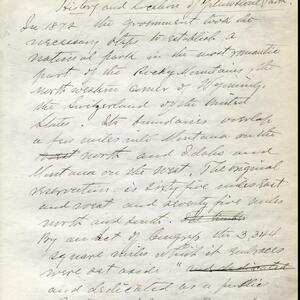 History and Location of Yellowstone Park.
In 1872 the government took the
necessary steps to establish a
national park in the most romantic
part of the Rocky Mountains, the
north western corner of Wyoming,
the Switzerland of the United
States. Its boundaries overlap
a few miles into Montana on the
north and Idaho and
Montana on the west. The original
reservation is sixty five miles east
and west and seventy five miles
north and south.
By an act of Congress the 3,344
square miles which it embraces
were set aside "and dedicated
and dedicated as a public